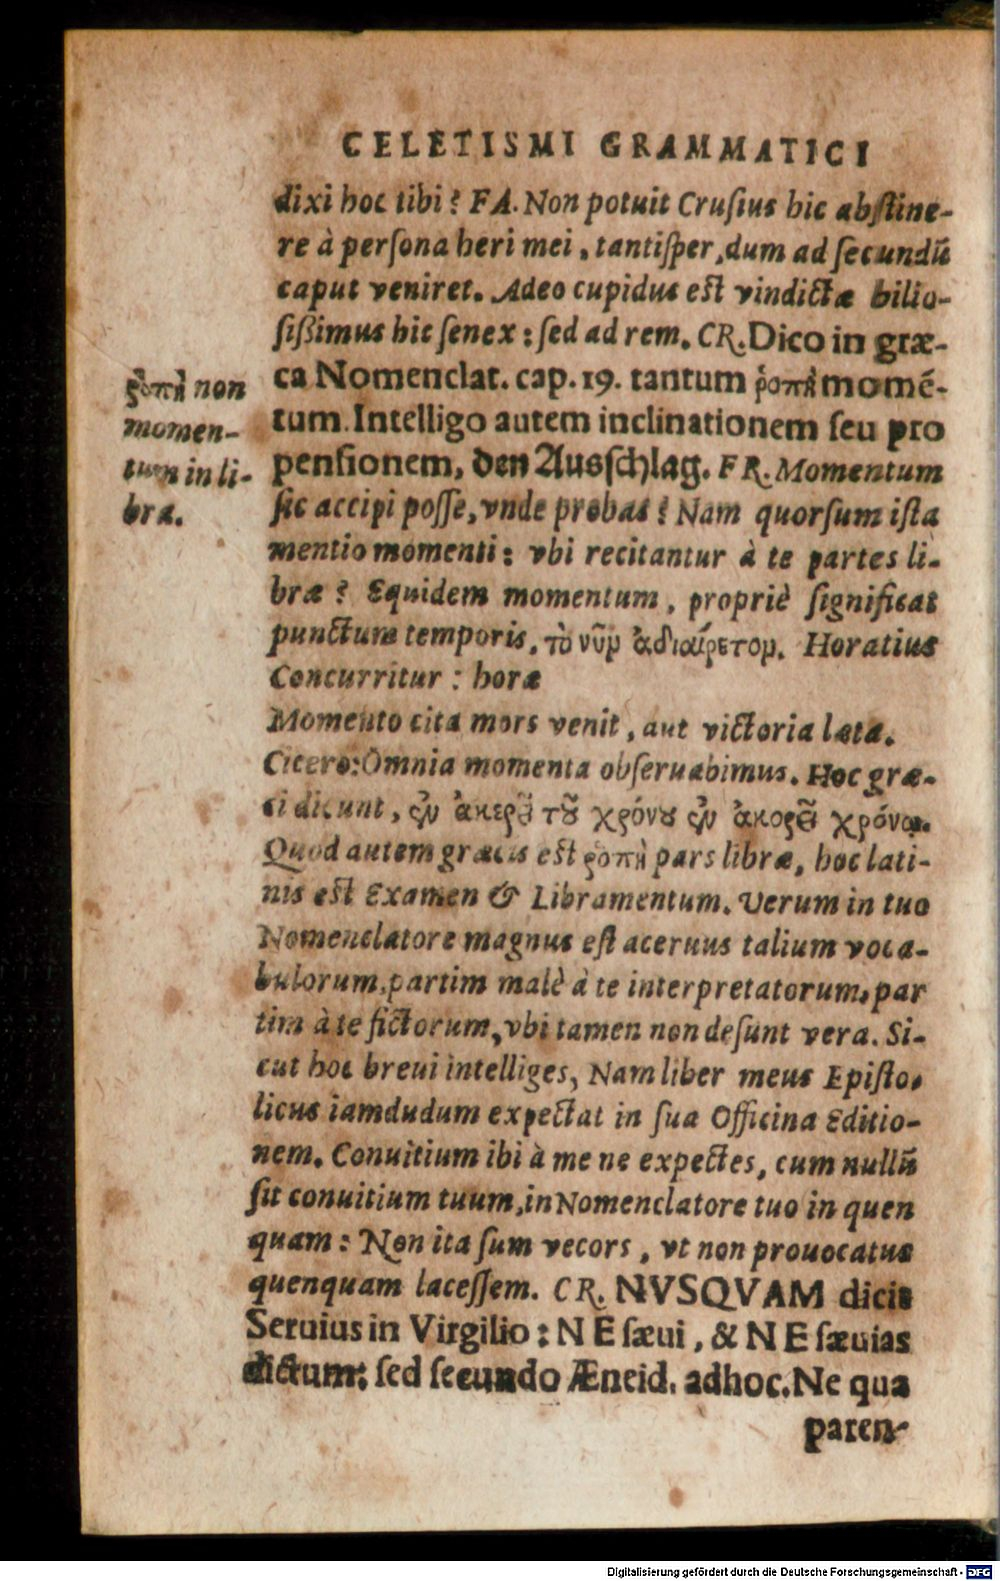 CELETISMI GRAMMATICI
dixi hoc tibi? FA. Non potuit Crusius hic abstine-
re à persona heri mei, tantisper, dum ad secundũ
caput veniret. Adeo cupidus est vindictæ bilio-
sißimus hic senex: sed ad rem. CR. Dico in græ-
ca Nomenclat. cap. 19. tantum ῥοπὴ momẽ-
tum. Intelligo autem inclinationem seu pro
pensionem, den Ausschlag. FR. Momentum
sic accipi posse, vnde probas? Nam quorsum ista
mentio momenti: vbi recitantur à te partes li-
bræ? Equidem momentum, propriè significat
punctum temporis, τὸ νῦν ἀδιαίρετον. Horatius
Concurritur: horæ
Momento cita mors venit, aut victoria læta.
Cicero: Omnia momenta obseruabimus. Hoc græ-
ci dicunt, ἐν ἀκερεῖ τοῦ χρόνου ἐν ἀκορεῖ χρόνῳ.
Quod autem græcis est ῥοπὴ pars libræ, hoc lati-
nis est Examen & Libramentum. Verum in tuo
Nomenclatore magnus est aceruus talium voca-
bulorum, partim malè à te interpretatorum, par
tim à te fictorum, vbi tamen non desunt vera. Si-
cut hoc breui intelliges, Nam liber meus Episto-
licus iamdudum expectat in sua Officina Editio-
nem. Conuitium ibi à me ne expectes, cum nullũ
sit conuitium tuum, in Nomenclatore tuo in quen
quam: Non ita sum vecors, vt non prouocatus
quenquam lacessem. CR. NVSQVAM dicis
Seruius in Virgilio: NE sæui, & NE sæuias
dictum: sed secundo Æneid. adhoc. Ne qua
paren-
ῥοπὴ non
momen-
tum in li-
bra.
Digitalisierung gefördert durch die Deutsche Forschungsgemeinschaft - DFG